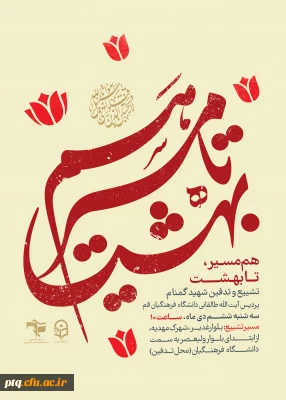 هم مسیر تا بهشت
هم‌مسیر،
تا بهشت
تشییع و تدفین شهید گمنام
پردیس آیت الله طالقانی دانشگاه فرهنگیان قم
سه شنبه ششم دی ماه، ساعت ۱۰
مسیر تشییع: بلوار غدیر، شهرک مهدیه،
از ابتدای بلوار ولیعصر به سمت
دانشگاه فرهنگیان (محل تدفین)
ptq.cfu.ac.ir